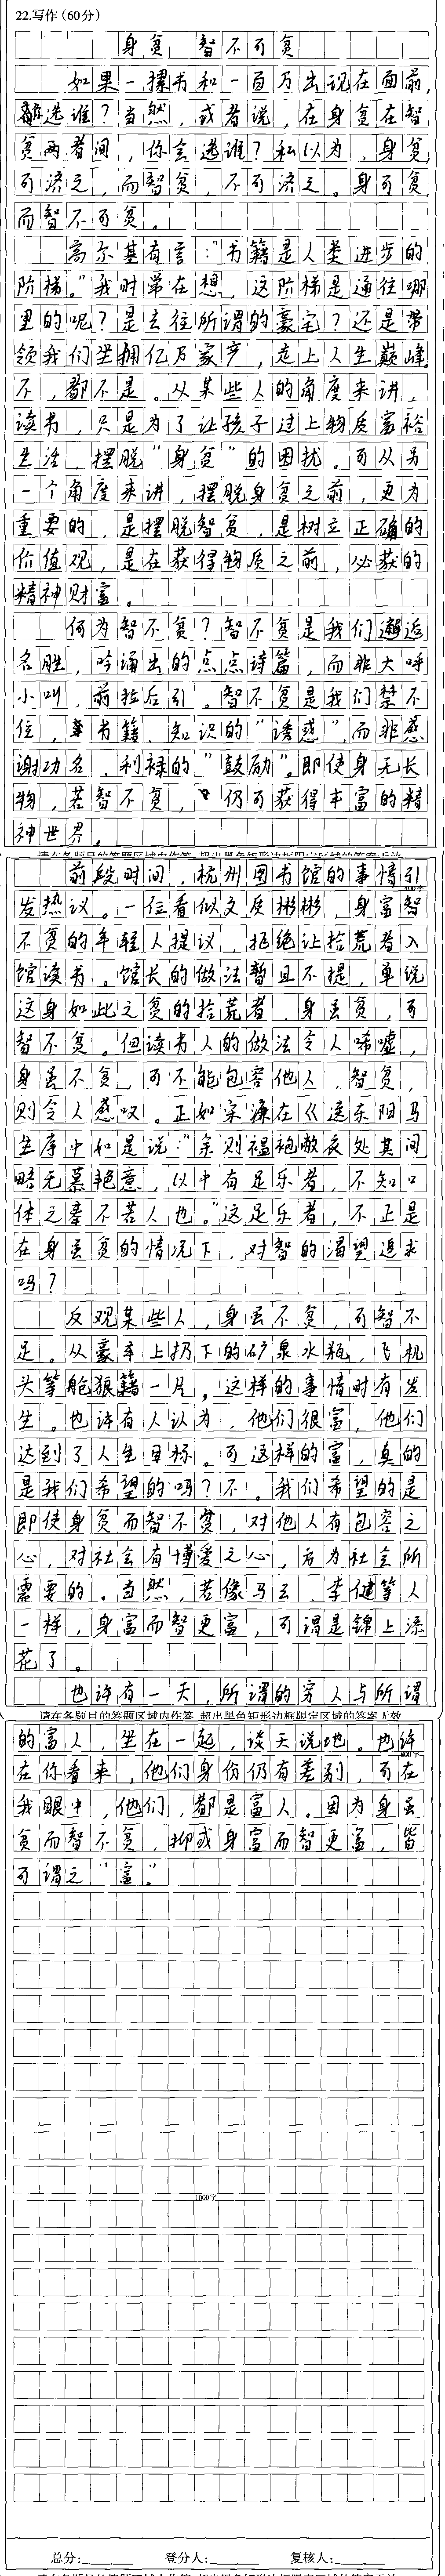 22.写作(60分)
身贫 智不可贫
如果一摞书和一百万出现在面前,
你选谁?当然,或者说,在身贫在智
贫两者间,你会选谁?私以为,身贫,
可济之,而智贫,不可济之。身可贫,
而智不可贫。
高尔基有言:“书籍是人类进步的
阶梯。”我时常在想,这阶梯是通往哪
里的呢?是去往所谓的豪宅?还是带
领我们坐拥亿万家产,走上人生巅峰。
不,都不是。从某些人的角度来讲,
读书,只是为了让孩子过上物质富裕
生活,摆脱“身贫”的困扰。可从另
一个角度来讲,摆脱身贫之前,更为
重要的,是摆脱智贫,是树立正确的
价值观,是在获得物质之前,必获的
精神财富。
何为智不贫?智不贫是我们邂逅
名胜,吟诵出的点点诗篇,而非大呼
小叫,前拉后引。智不贫是我们禁不
住,书籍、知识的“诱惑”,而非感
谢功名、利禄的“鼓励”。即使身无长
物,若智不贫,仍可获得丰富的精
神世界。
请在各题目的答题区域内作答,超出黑色矩形边框限定区域的答案无效
前段时间,杭州图书馆的事情引
400字
发热议。一位看似文质彬彬,身富智
不贫的年轻人提议,拒绝让拾荒者入
馆读书。馆长的做法暂且不提,单说
这身如此之贫的拾荒者,身虽贫,可
智不贫。但读书人的做法令人唏嘘,
身虽不贫,可不能包容他人,智贫,
则令人感叹。正如宋濂在《送东阳马
生序中如是说:“余则缊袍敝衣处其间,
略无慕艳意,以中有足乐者,不知口
体之奉不若人也。”这足乐者,不正是
在身虽贫的情况下,对智的渴望追求
吗?
反观某些人,身虽不贫,可智不
足。从豪车上扔下的矿泉水瓶,飞机
头等舱狼籍一片,这样的事情时有发
生。也许有人认为,他们很富,他们
达到了人生目标。可这样的富,真的
是我们希望的吗?不。我们希望的是
即使身贫而智不贫,对他人有包容之
心,对社会有博爱之心,方为社会所
需要的。当然,若像马云、李健等人
一样,身富而智更富,可谓是锦上添
花了。
也许有一天,所谓的穷人与所谓
请在各题目的答题区域内作答,超出黑色矩形边框限定区域的答案无效
的富人,坐在一起,谈天说地。也许
800字
在你看来,他们身份仍有差别,可在
我眼中,他们,都是富人。因为身虽
贫而智不贫,抑或身富而智更富,皆
可谓之“富”。
1000字
总分:______ 登分人:______ 复核人:______